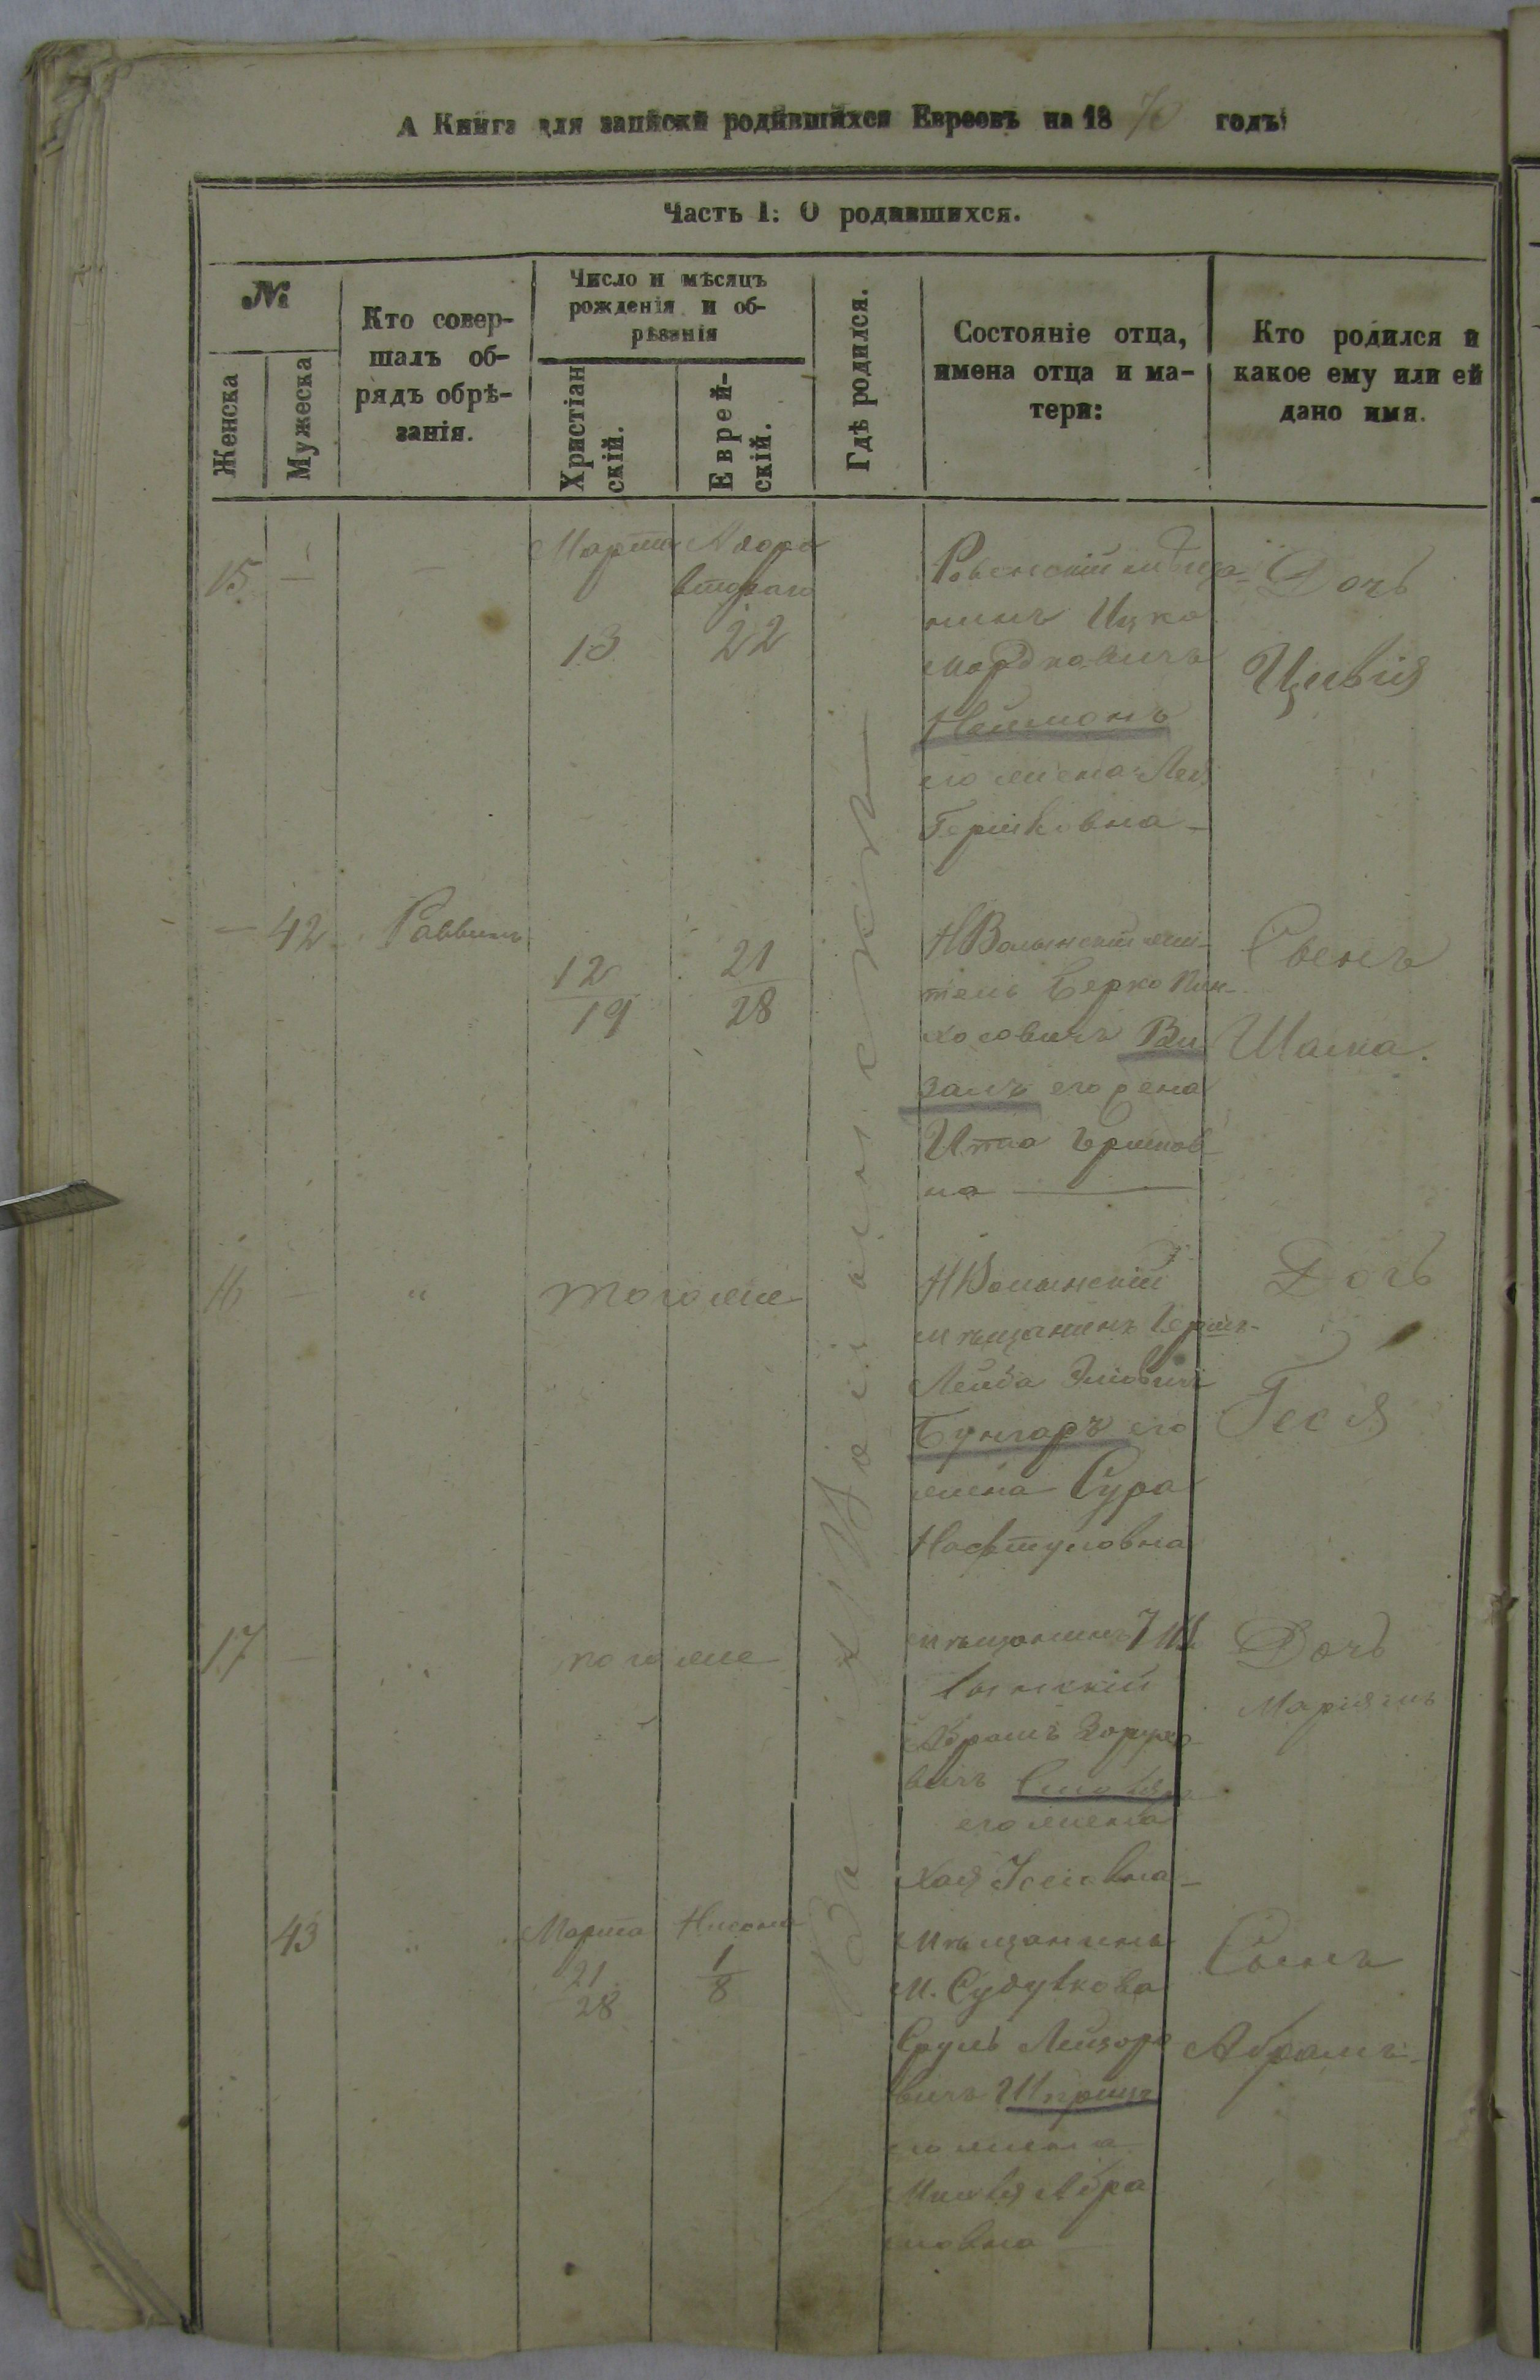 А Книга для записки родившихся Евреевъ на 1870 годъ
Часть I: О родившихся.
№
Женска
Мужеска
Кто совер-
шалъ об-
рядъ обрѣ-
занія.
Число и мѣсяцъ
рожденія и об-
рѣзанія
Христіан
скій.
Еврей-
скій.
Гдѣ родился.
Состояніе отца,
имена отца и ма-
тери:
Кто родился и
какое ему или ей
дано имя.
15
—
—
Марта
13
Адара
втораго
22
Ровенскій мѣща-
нинъ Ицко
Мордковичъ
Нейманъ
его жена Лея
Гершковна
Дочь
Цивія
—
42
Раввинъ
12
19
21
28
НВолынскій жи-
тель Берко Пин-
хосовичъ
его жена
Итта
на
Сынъ
16
—
"
тогоже
НВолынскій
мѣщанинъ Герш-
Лейба
Бунгаръ его
жена Сура
Нафтуловна
Дочь
Гися
17
—
"
тогоже
мѣщанинъ
лынскій
Абрамъ
вичъ
его жена
Хая
Дочь
43
"
Марта
21
28
Нисана
1
8
Мѣщанинъ
М. Судулкова
Сруль Лейзоро
вичъ
его жена
Абра
мовна
Сынъ
Абрамъ